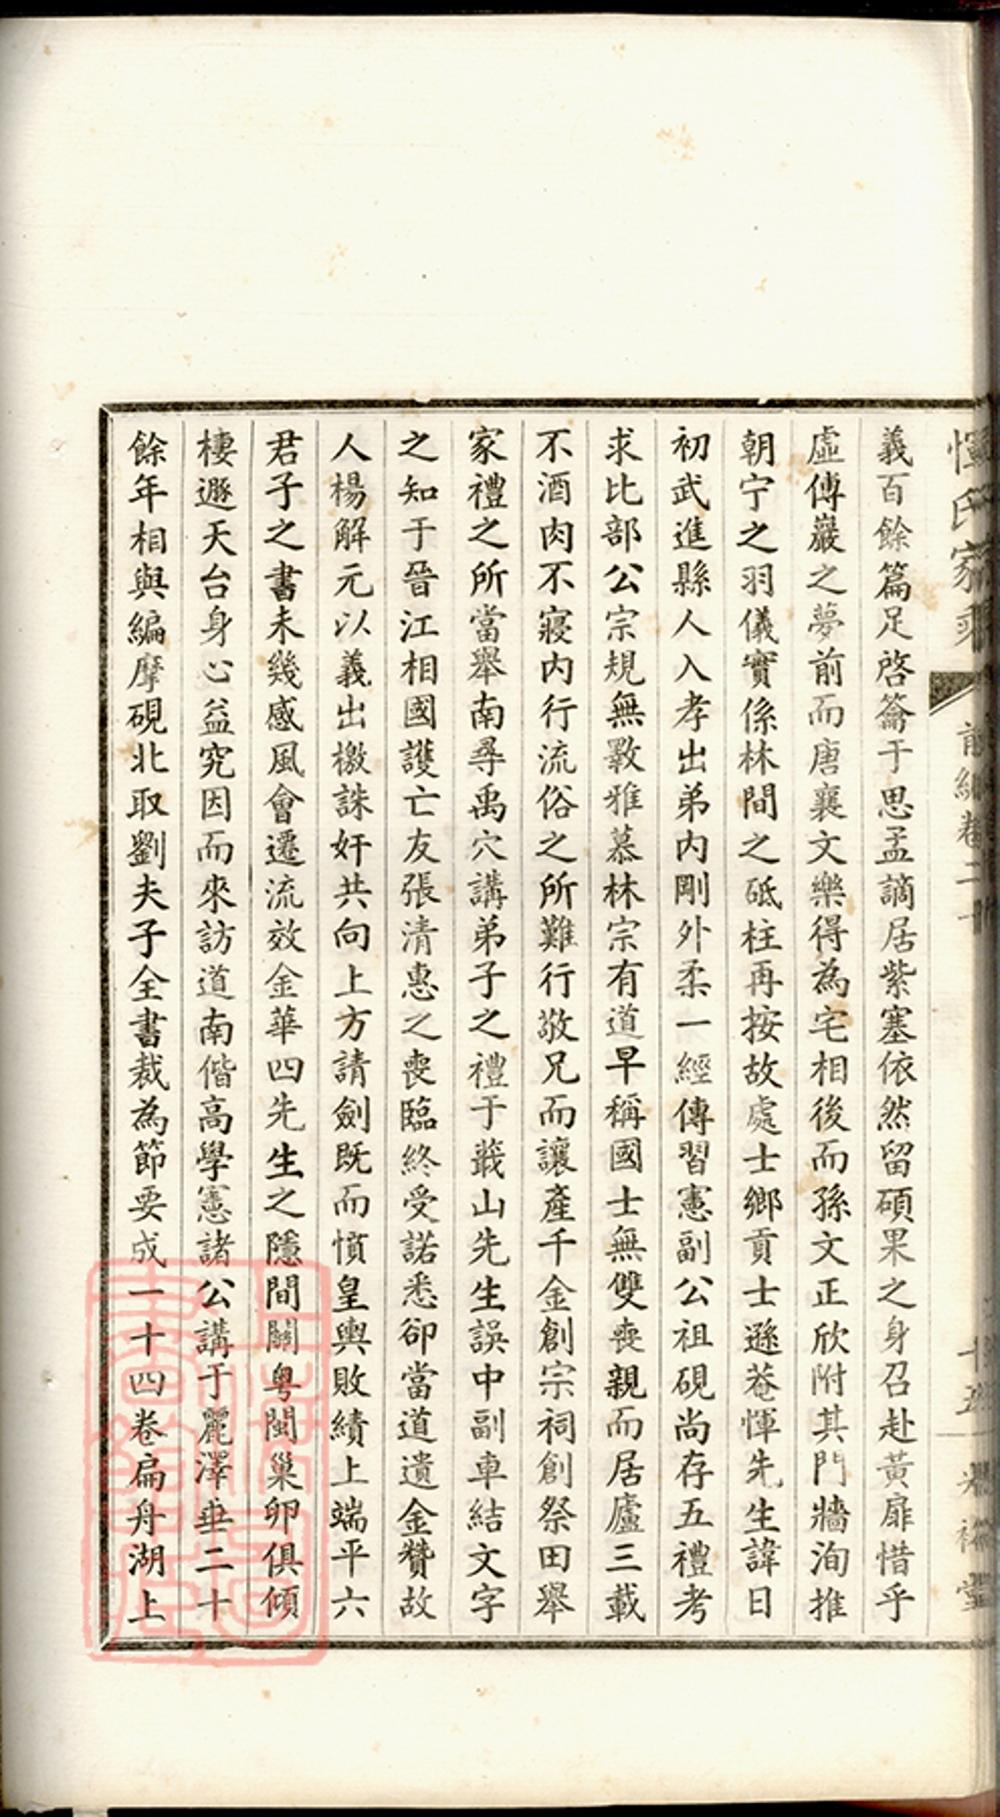 惲氏家乘
前編卷二十
義百餘篇足啓籥于思孟謫居紫塞依然留碩果之身召赴黃扉惜乎
虛傅巖之夢前而唐襄文樂得為宅相後而孫文正欣附其門牆洵推
朝宁之羽儀實係林間之砥柱再按故處士鄉貢士遜菴惲先生諱日
初武進縣人入孝出弟內剛外柔一經傳習憲副公祖硯尚存五禮考
求比部公宗規無斁雅慕林宗有道早稱國士無雙喪親而居廬三載
不酒肉不寢內行流俗之所難行敬兄而讓產千金創宗祠創祭田舉
家禮之所當舉南尋禹穴講弟子之禮于蕺山先生誤中副車結文字
之知于晉江相國護亡友張清惠之喪臨終受諾悉卻當道遺金贊故
人楊解元以義出檄誅奸共向上方請劍既而憤皇輿敗績上端平六
君子之書未幾感風會遷流效金華四先生之隱間關粵閩巢卵俱傾
棲遯天台身心益究因而來訪道南偕高學憲諸公講于麗澤垂二十
餘年相與編摩硯北取劉夫子全書裁為節要成一十四卷扁舟湖上